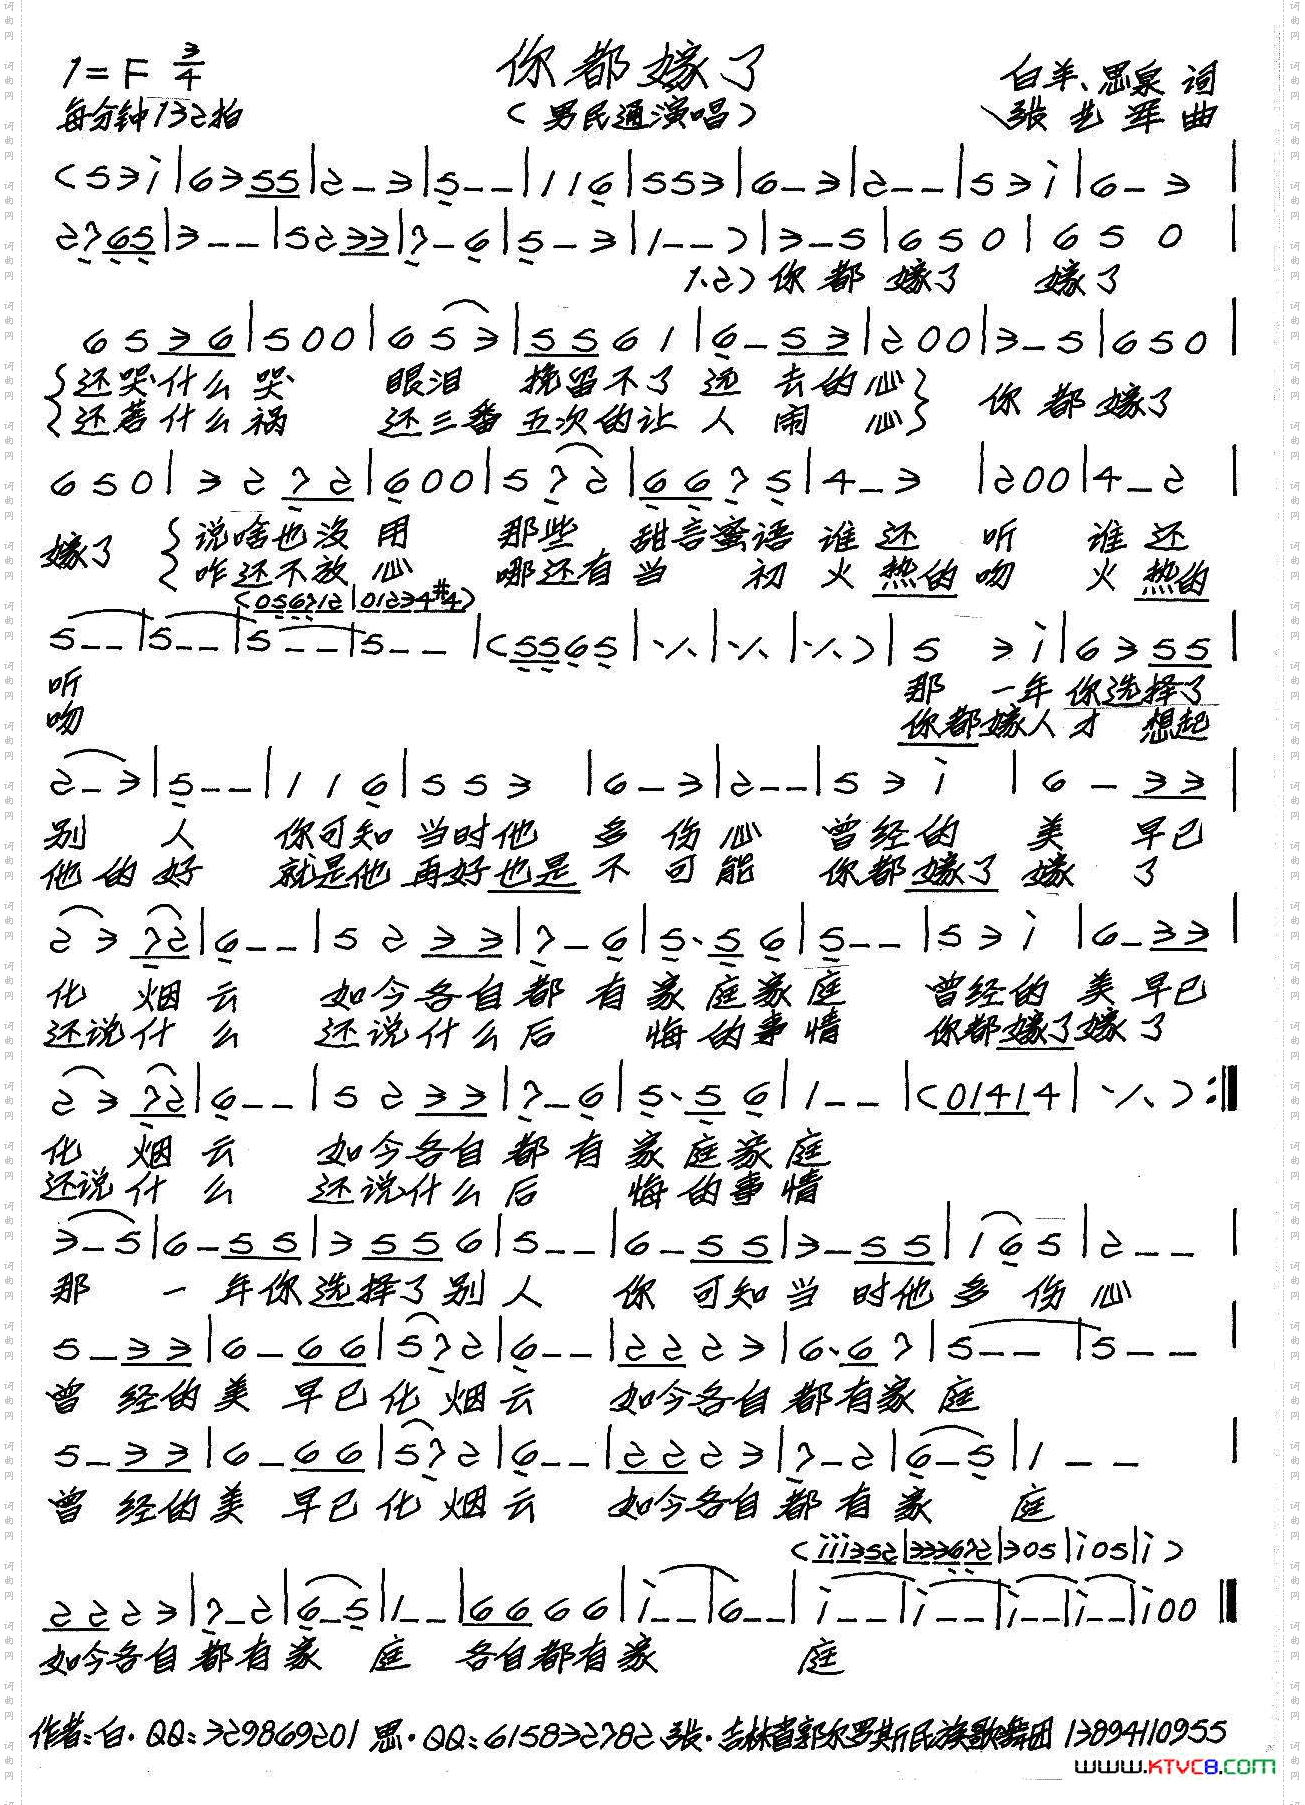 1=F 3/4
你都嫁了
白羊、思泉 词
每分钟132拍
(男民通演唱)
张艺军 曲
(5 3 i|6 3 5 5|2 – 3|5 – –|1 1 6|5 5 3|6 – 3|2 – –|5 3 i|6 – 3|
2 7 6 5|3 – –|5 2 3 3|7 – 6|5 – 3|1 – –)|3 – 5|6 5 0|6 5 0|
1.2)你都嫁了 嫁了
6 5 3 6|5 0 0|6 5 3|5 5 6 1|6 – 5 3|2 0 0|3 – 5|6 5 0|
还哭什么哭 眼泪 挽留不了 远去的心 你都嫁了
还惹什么祸 还三番五次的让人闹心
6 5 0|3 2 7 2|6 0 0|5 7 2|6 6 7 5|4 – 3|2 0 0|4 – 2|
嫁了 说啥也没用 那些 甜言蜜语谁还听 谁还
咋还不放心 哪还有当 初火热的吻 火热的
(0 5 6 7 1 2|0 1 2 3 4 #4)
5 – –|5 – –|5 – –|5 – –|(5 5 6 5|·/.|·/.|·/.)|5 3 i|6 3 5 5|
听 那一年你选择了
吻 你都嫁人才想起
2 – 3|5 – –|1 1 6|5 5 3|6 – 3|2 – –|5 3 i|6 – 3 3|
别人 你可知当时他多伤心 曾经的美早已
他的好 就是他再好也是不可能 你都嫁了嫁了
2 3 7 2|6 – –|5 2 3 3|7 – 6|5· 5 6|5 – –|5 3 i|6 – 3 3|
化烟云 如今各自都有家庭家庭 曾经的美早已
还说什么 还说什么后悔的事情 你都嫁了嫁了
2 3 7 2|6 – –|5 2 3 3|7 – 6|5· 5 6|1 – –|(0 1 4 1 4|·/.):‖
化烟云 如今各自都有家庭家庭
还说什么 还说什么后悔的事情
3 – 5|6 – 5 5|3 5 5 6|5 – –|6 – 5 5|3 – 5 5|1 6 5|2 – –|
那一年你选择了别人 你可知当时他多伤心
5 – 3 3|6 – 6 6|5 7 2|6 – –|2 2 2 3|6· 6 7|5 – –|5 – –
曾经的美早已化烟云 如今各自都有家庭
5 – 3 3|6 – 6 6|5 7 2|6 – –|2 2 2 3|7 – 2|6 – 5|1 – –|
曾经的美早已化烟云 如今各自都有家庭
(i i i 3 5 2|3 3 3 6 7 2|3 0 5|i 0 5|i)
2 2 2 3|7 – 2|6 – 5|1 – –|6 6 6 6|i – –|6 – –|i – –|i – –|i – –|i – –|i 0 0‖
如今各自都有家庭 各自都有家庭
作者:白·QQ:329869201 思·QQ:615832782 张·吉林省郭尔罗斯民族歌舞团 13894110955
www.KTVC8.com